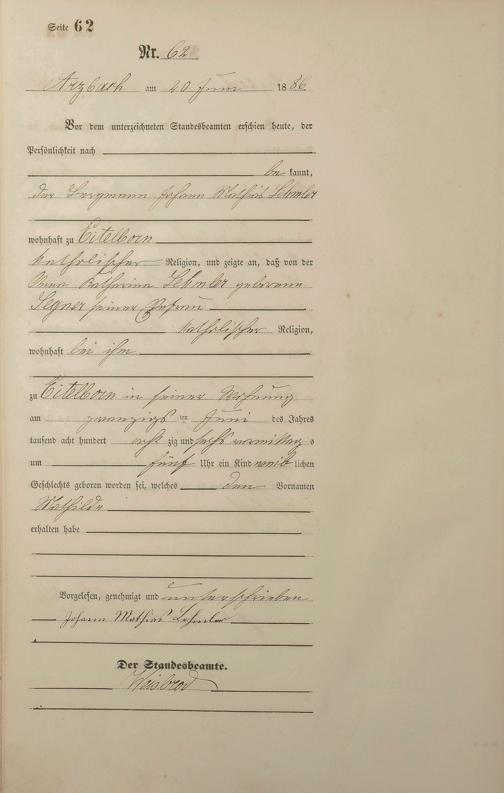 Seite 62
Nr. 62
Arzbach am 20 Juni 1886
Vor dem unterzeichneten Standesbeamten erschien heute, der
Persönlichkeit nach
be kannt,
der Bergmann Johann Mathias
wohnhaft zu Eitelborn
katholischer Religion, und zeigte an, daß von der
Katharina geborene
seiner Ehefrau
katholischer Religion,
wohnhaft bei ihm
zu Eitelborn in seiner Wohnung
am zwanzigsten Juni des Jahres
tausend acht hundert acht zig und sechs vormittags
um fünf Uhr ein Kind weib lichen
Geschlechts geboren worden sei, welches den Vornamen
Mathilde
erhalten habe
Vorgelesen, genehmigt und unterschrieben
Johann Mathias
Der Standesbeamte.
Weisbrod